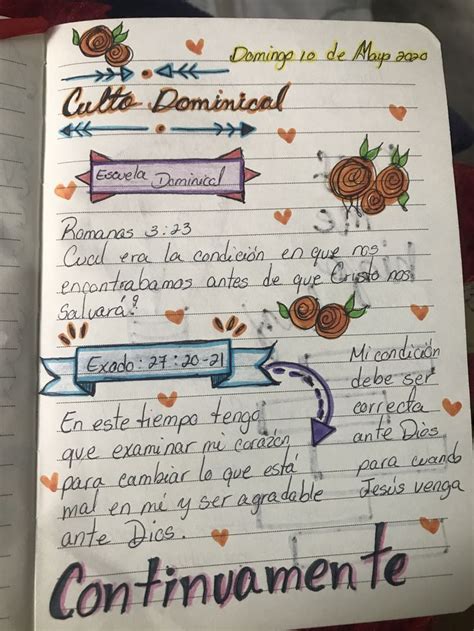 Domingo 10 de Mayo 2020
Culto Dominical
Escuela Dominical
Romanas 3:23
Cual era la condición en que nos
encontrabamos antes de que Cristo nos
Salvará?
Exado: 27:20-21
En este tiempo tengo
que examinar mi corazón
para cambiar lo que está
mal en mí y ser agradable
ante Dios.
Mi condición
debe ser
correcta
ante Dios
para cuando
Jesús venga
Continuamente